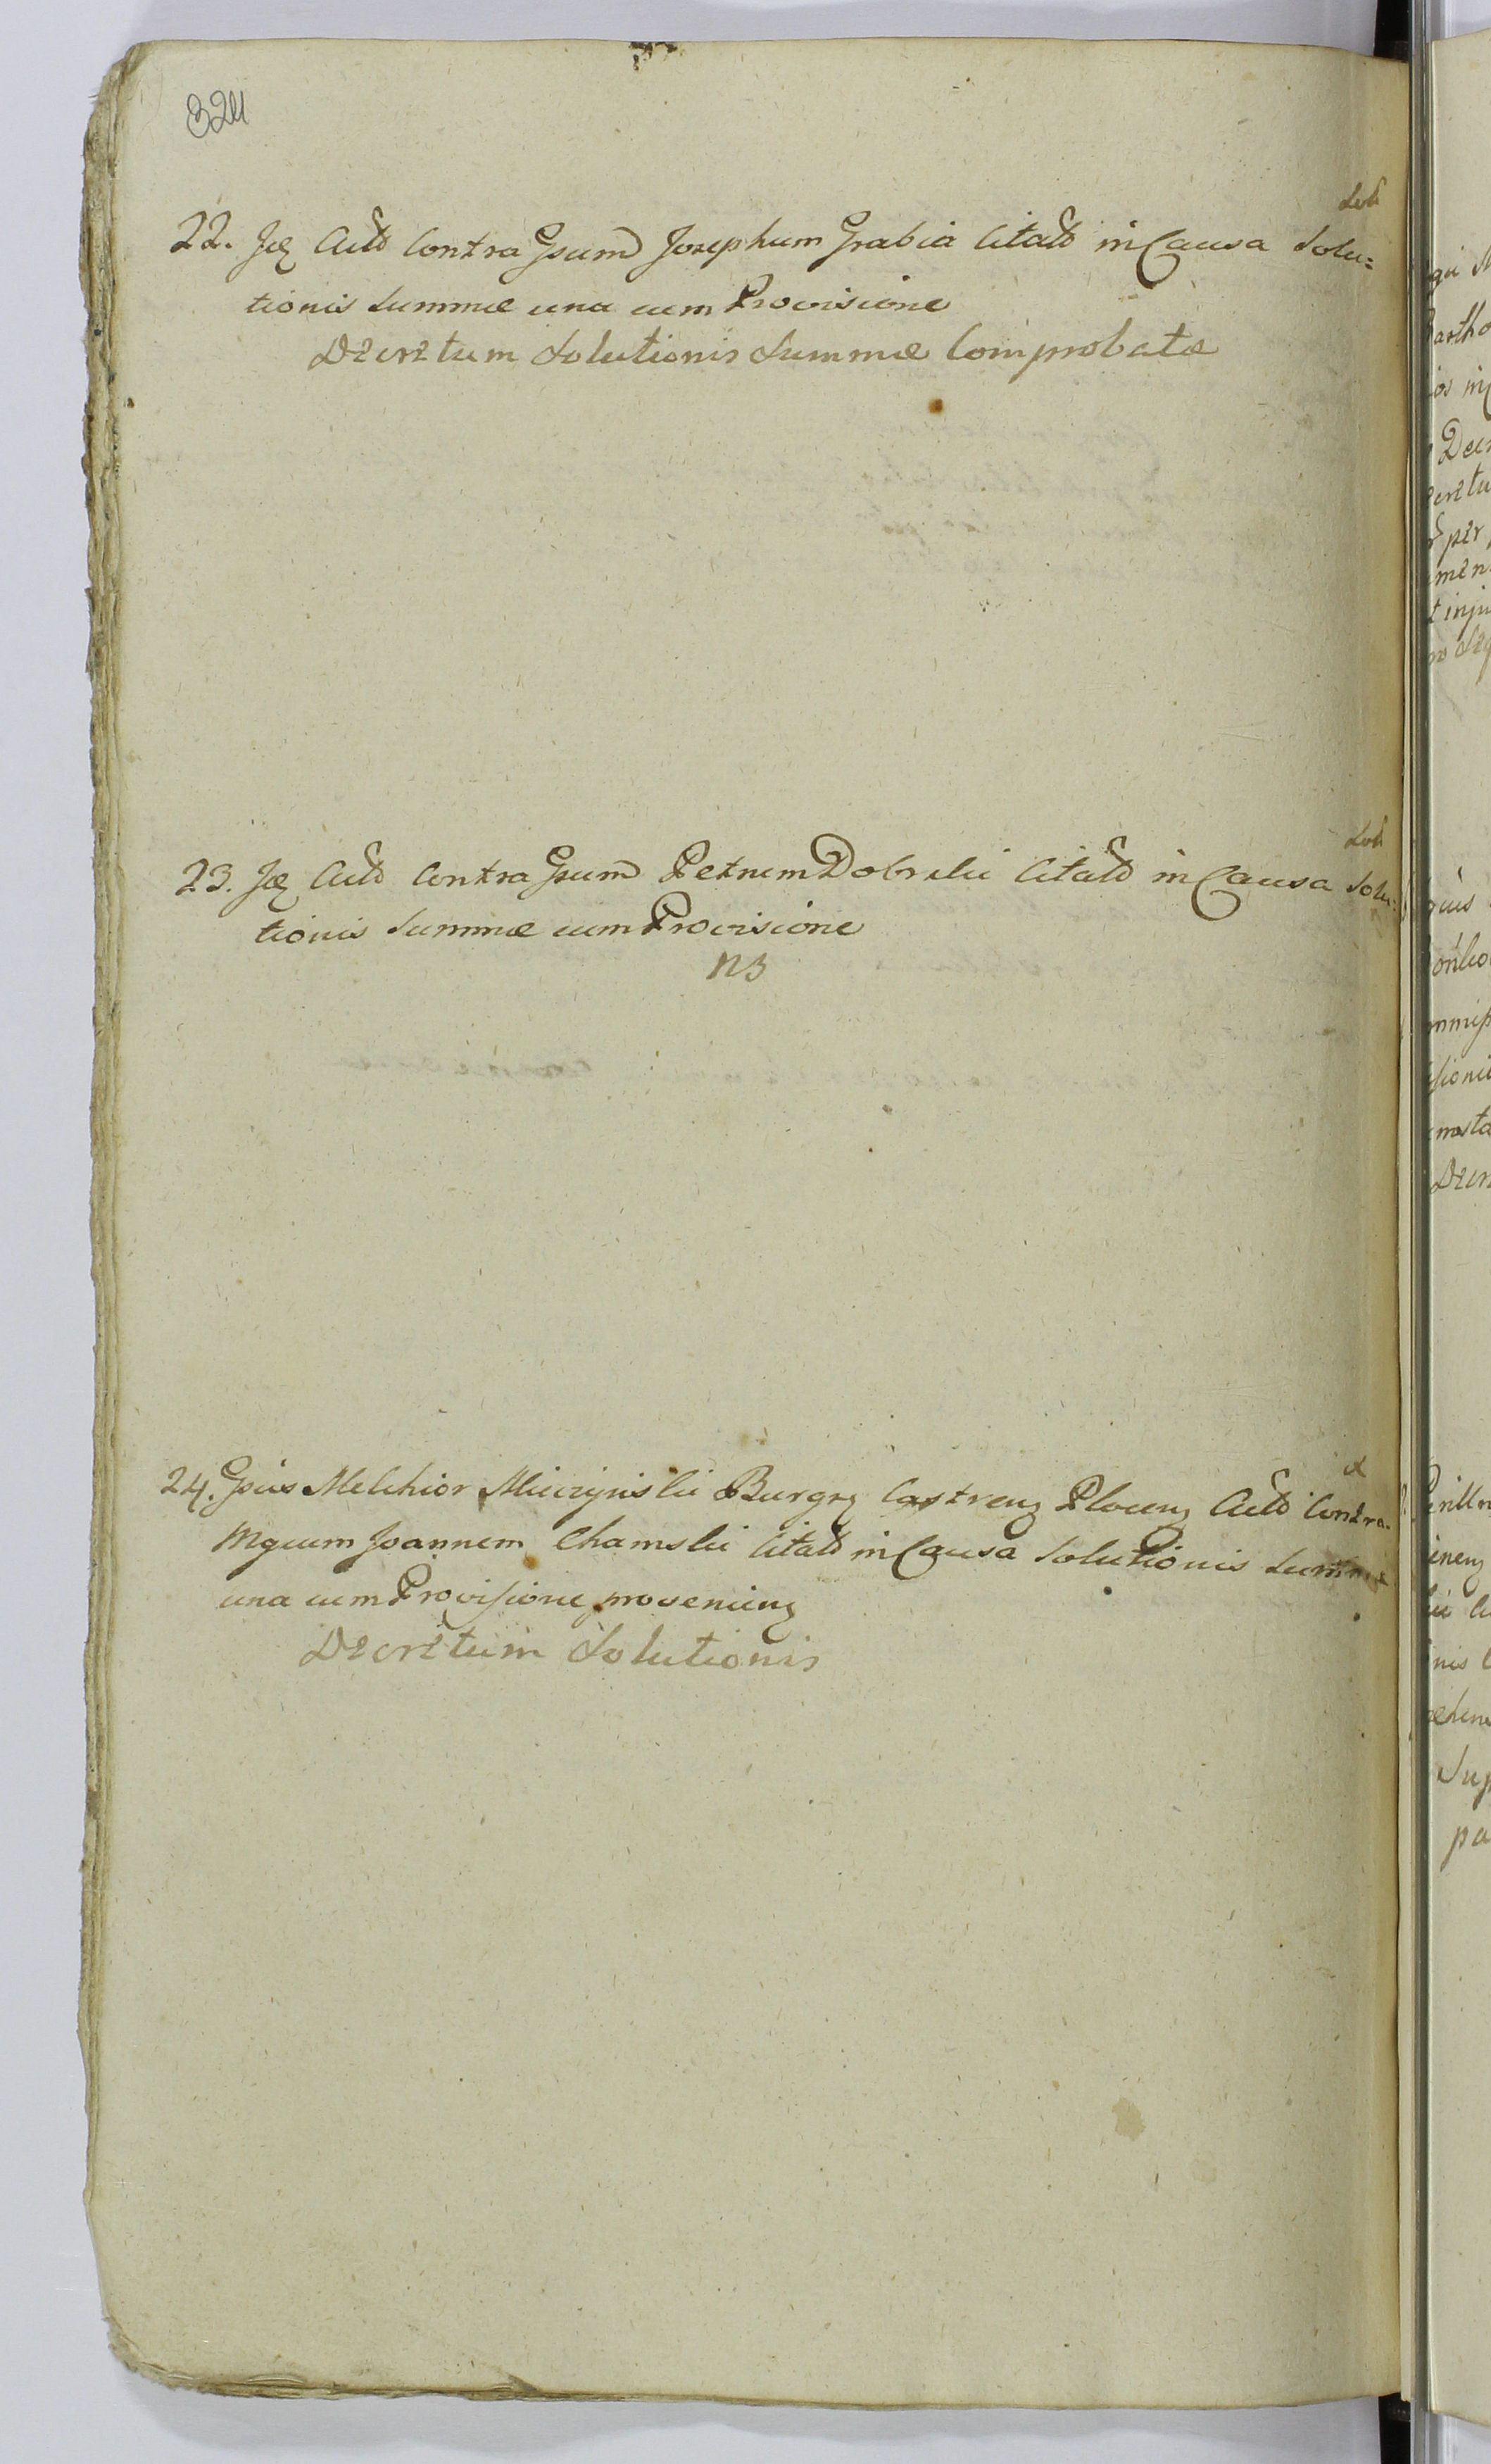 324
22. Idz Actts contra Gsum Josephum Grabia Citatts in Causa Solu=
tionis Summæ una cum Provisione
Decretum Solutionis Summæ Comprobatæ
23. Idz Actts contra Gsum Petrum Dobrski Citatts in Causa Solu=
tionis Summæ cum Provisione
NB
24. Gsus Melchior Mierzynski Burgrz Castrenz Plocenz Actts Contra
Mgcum Joannem Chamski Citatts in Causa Solutionis Summæ
una cum Provisione provenienz
Decretum Solutionis